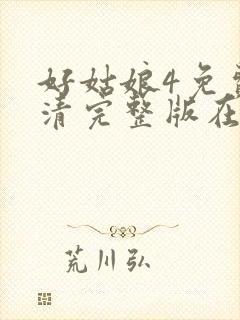 好姑娘4免
清完整版在
荒川弘